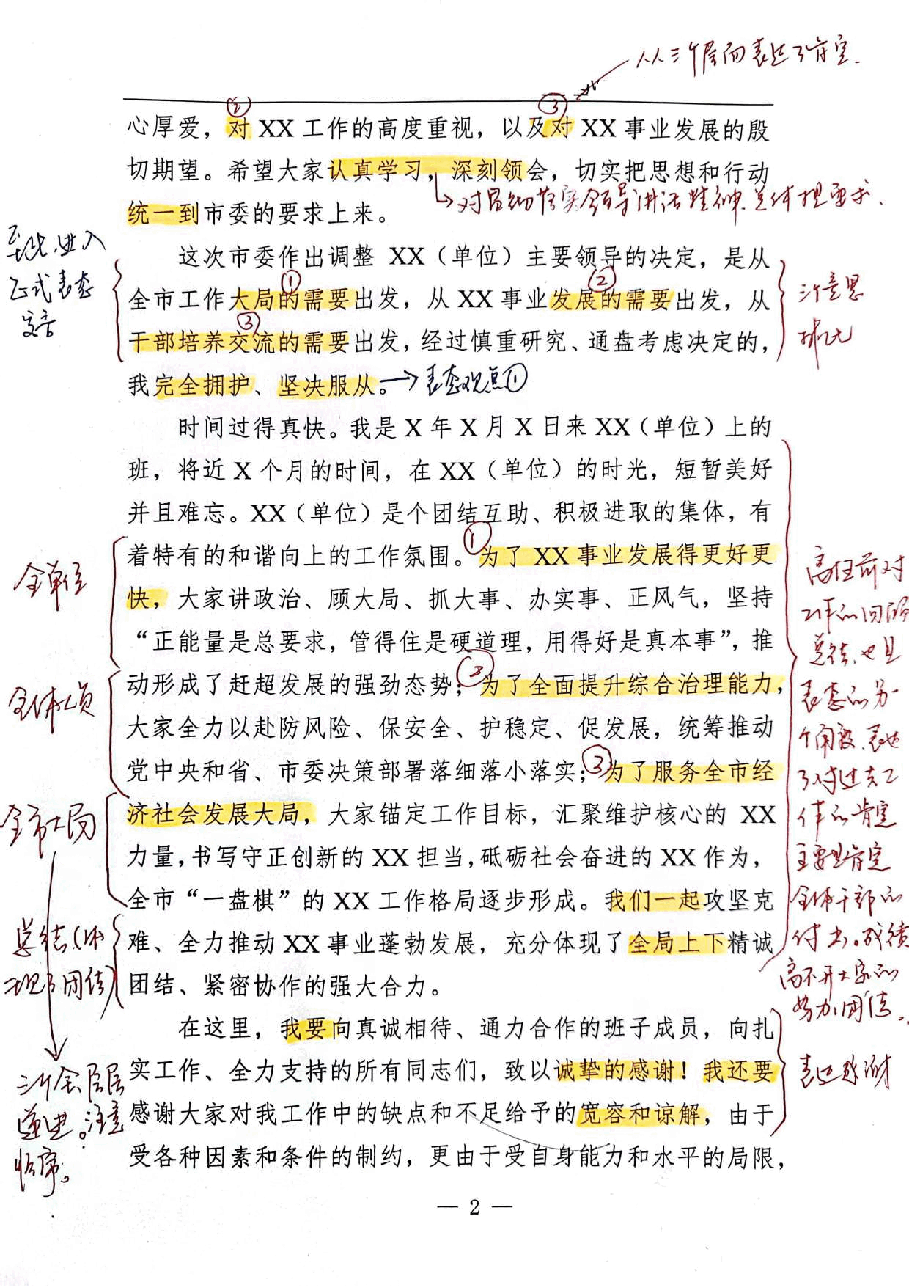 从三个层面表达了肯定
② ③
心厚爱，对 XX 工作的高度重视，以及对 XX 事业发展的殷
切期望。希望大家认真学习，深刻领会，切实把思想和行动
统一到市委的要求上来。
至此，进入
正式表态
发言
这次市委作出调整 XX（单位）主要领导的决定，是从
① ②
全市工作大局的需要出发，从 XX 事业发展的需要出发，从
③
干部培养交流的需要出发，经过慎重研究、通盘考虑决定的，
三个意思
我完全拥护、坚决服从。
表态观点①
时间过得真快。我是 X 年 X 月 X 日来 XX（单位）上的
班，将近 X 个月的时间，在 XX（单位）的时光，短暂美好
并且难忘。XX（单位）是个团结互助、积极进取的集体，有
①
着特有的和谐向上的工作氛围。为了 XX 事业发展得更好更
全单位
快，大家讲政治、顾大局、抓大事、办实事、正风气，坚持
“正能量是总要求，管得住是硬道理，用得好是真本事”，推
②
动形成了赶超发展的强劲态势；为了全面提升综合治理能力，
全体人员
大家全力以赴防风险、保安全、护稳定、促发展，统筹推动
③
党中央和省、市委决策部署落细落小落实；为了服务全市经
全市大局
济社会发展大局，大家锚定工作目标，汇聚维护核心的 XX
力量，书写守正创新的 XX 担当，砥砺社会奋进的 XX 作为，
全市“一盘棋”的 XX 工作格局逐步形成。我们一起攻坚克
难、全力推动 XX 事业蓬勃发展，充分体现了全局上下精诚
团结、紧密协作的强大合力。
总结（体
现了团结）
离任前对
工作的回顾
总结，也是
表态的另一
个角度，表达
了对过去工
作的肯定
主要是肯定
全体干部的
付出。成绩
离不开大家的
努力，团结。
在这里，我要向真诚相待、通力合作的班子成员，向扎
实工作、全力支持的所有同志们，致以诚挚的感谢！我还要
感谢大家对我工作中的缺点和不足给予的宽容和谅解，由于
受各种因素和条件的制约，更由于受自身能力和水平的局限，
三个层层
递进。注意
顺序。
表达感谢
— 2 —